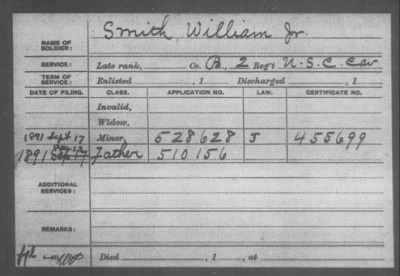 NAME OF SOLDIER: Smith, William Jr.
SERVICE: Late rank, Co. B, 2 Reg't U.S.C. Cav
TERM OF SERVICE: Enlisted , 1 Discharged , 1
DATE OF FILING. CLASS. APPLICATION NO. LAW. CERTIFICATE NO.
Invalid,
Widow,
1891 Sept 17 Minor, 528628 J 455699
1891 Father 510156
ADDITIONAL SERVICES:
REMARKS:
Died , 1 , at